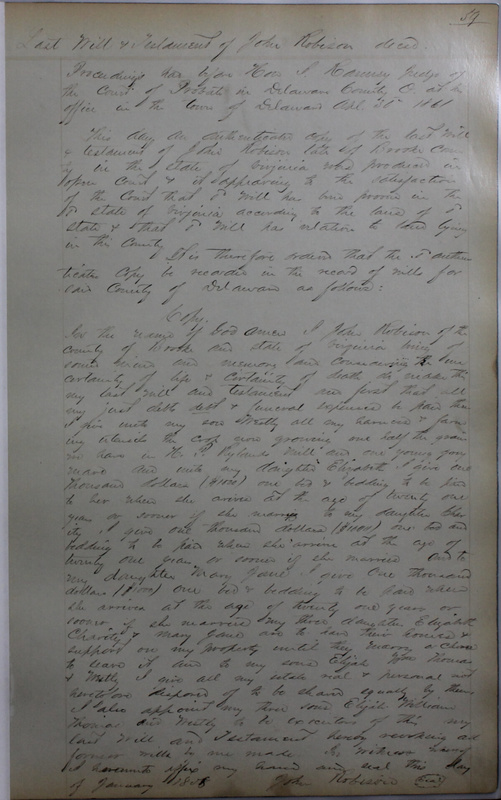 59
Last Will & Testament of John Robison decd
Proceedings had before Hon Judge of
the Court of Probate in Delaware County O. at his
office in the town of Delaware
This day an authenticated copy of the last Will
& testament of John Robison late of Brooke Coun
ty in the state of Virginia was produced in
open Court & it appearing to the satisfaction
of the Court that Will has been proven in the
state of Virginia according to the laws of
state & that Will has relation to land lying
in this County
It is therefore ordered that the authen
ticated Copy be recorded in the record of wills for
said County of Delaware as follows:
Copy.
In the name of God amen I John Robison of the
County of Brooke and state of Virginia being of
sound mind and memory and considering the uncer
certainty of life & certainty of death do make this
my last Will and testament and first that all
my just debts debt & funeral expenses be paid then
I give unto my son Westly all my harness & farm
ing utensils the crop now growing one half the grain
in barn in Mill and one young gray
mare And unto my daughter Elizabeth I give one
thousand dollars ($1000) one bed & bedding to be paid
to her when she arrives at the age of twenty one
years or sooner if she marries to my daughter Char
ity I give one thousand dollars ($1000) one bed and
bedding to be paid when she arrives at the age of
twenty one years or sooner if she married And to
my daughter Mary Jane I give One thousand
dollars ($1000) One bed & bedding to be paid when
she arrives at the age of twenty one years or
sooner if she married my three daughters Elizabeth
Charity & Mary Jane are to have their homes &
support on my property until they marry or choose
to leave it And to my sons Elijah Wm Thomas
& Westly I give all my estate real & personal not
heretofore disposed of to be shared equally by them
I also appoint my three sons Elijah William
Thomas and Westly to be executors of this my
last Will and Testament hereby revoking all
former wills by me made In witness whereof
I hereunto affix my hand and seal this day
of January
John Robison Seal